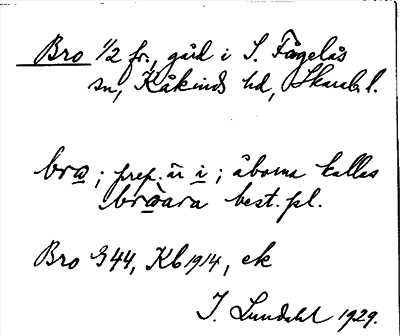 Bro 1/2 fr., gård i S. Fågelås
sn, Kåkinds hd, Skarab. l.
bro; prep. är i; åborna kallas
broara best. pl.
Bro 344, Kb 1914, ek
I. Lundahl 1929.